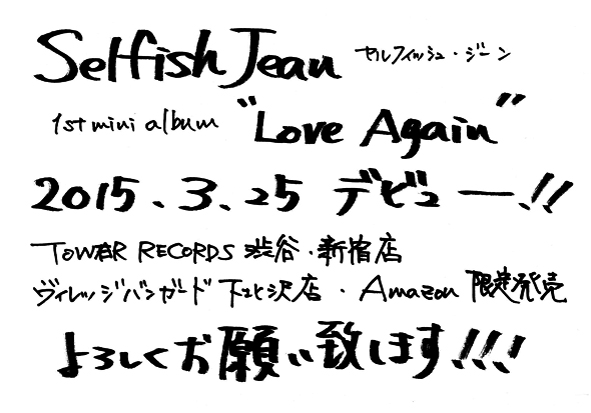 Selfish Jean セルフィッシュ・ジーン
1st mini album "Love Again"
2015.3.25 デビュー!!
TOWER RECORDS 渋谷・新宿店
ヴィレッジバンガード 下北沢店・Amazon 限定発売
よろしくお願い致します!!!